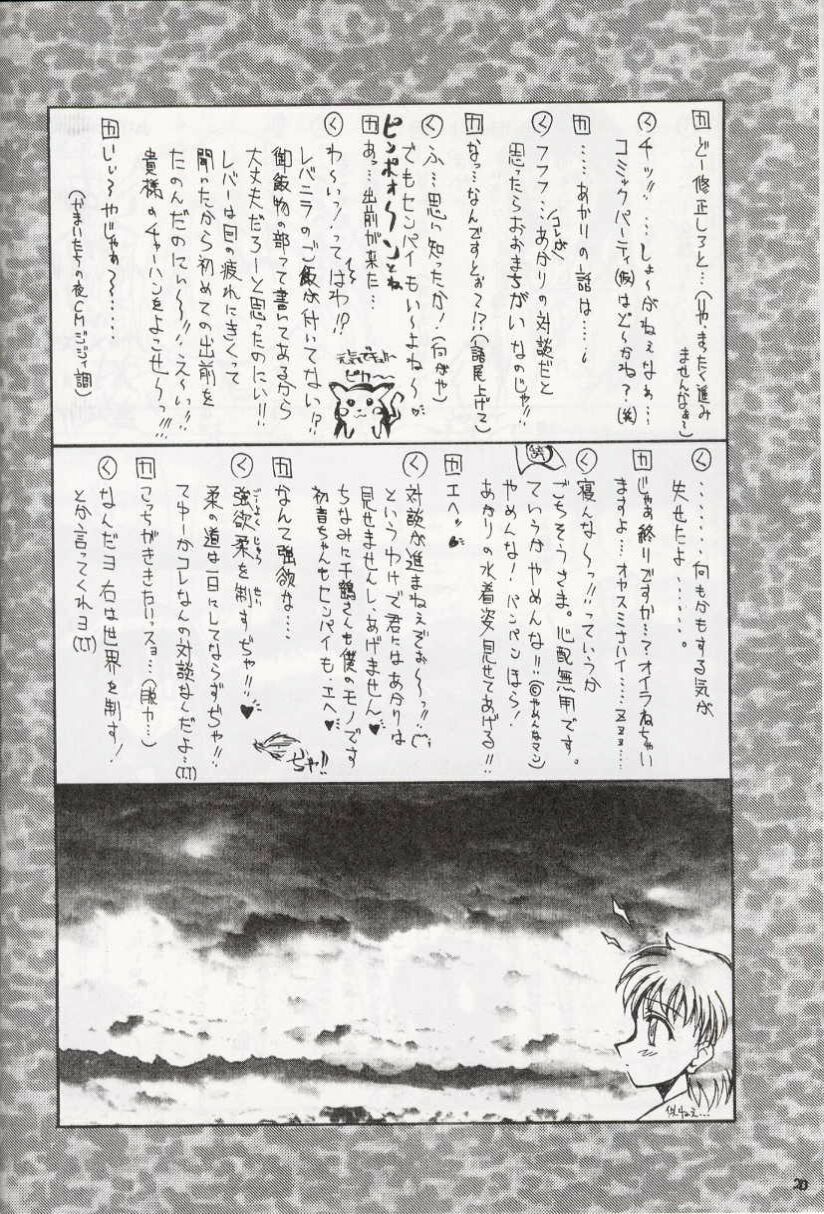 カ どー修正しろと…(いや、まったく進み
ませんなぁ~)
く チッ!!…しょ~がねぇなぁ…
コミックパーティ(仮)はど~かね?(笑)
カ ……あかりの話は……
く フフフ…あかりの対談だと
コレが
思ったらおおまちがいなのじゃ!!
カ なっ…なんですとぉ~!?(語尾上げて)
く ふ…思い知ったか!(何がや)
さもセンパイもい~よね~♥
ピンポォ~ンとね
カ あっ…出前が来た…
く わ~いっ!ってはわ!?
レバニラのご飯が付いてない!?
御飯物の部って書いてあるから
大丈夫だろーと思ったのにい!!
レバーは目の疲れにきくって
聞いたから初めての出前を
たのんだのにぃ~!!え~い!!
貴様のチャーハンをよこせ~っ!!!
カ いいィやじゃぁ~~……
(かまいたちの夜CMジジィ調)
元気でチュ~
ピカ~
く ……何もかもする気が
失せたよ……。
カ じゃあ終りですか…?オイラねちゃい
ますよ…オヤスミなさハイ……ZZZ……
く 寝んな~っ!!っていうか
ごちそうさま。心配無用です。
ていうかやめんな!!(©やめんなマン)
やめんな!パンパンほら!
あかりの水着姿見せてあげる!!
カ エヘッ♥
く 対談が進まねえでぉ~っ!!
というわけで君にはあかりは
見せませんし、あげません♥
ちなみに千鶴さんも僕のモノです
初音ちゃんもセンパイも、エヘ♥
カ なんて強欲な…
く 強欲柔を制すぢゃ!!♥
ごうよくじゅう せい
柔の道は一日にしてならずぢゃ!!
てゆーかコレなんの対談なんだよ…(T.T)
ぢゃ!!
カ こっちがききたいっスョ…(脱力…)
く なんだヨ 右は世界を制す!
とか言ってくれヨ(T.T)
似てねぇ…
20